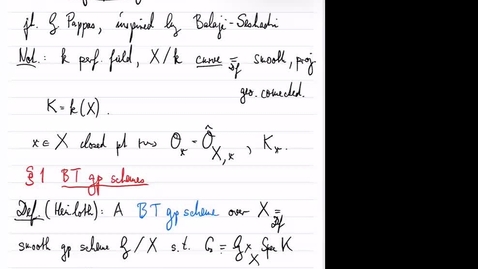 jt. G. Pappas, inspired by Balaji-Seshadri
Not.: k perf. field, X/k curve =Df smooth, proj
geo. connected.
K = k(X).
x ∈ X closed pt ⇝ O_x = Ô_{X,x}, K_x.
§1 BT gp schemes
Def. (Heinloth): A BT gp scheme over X =Df
smooth gp scheme G/X s.t. G = G ×_X Spec K